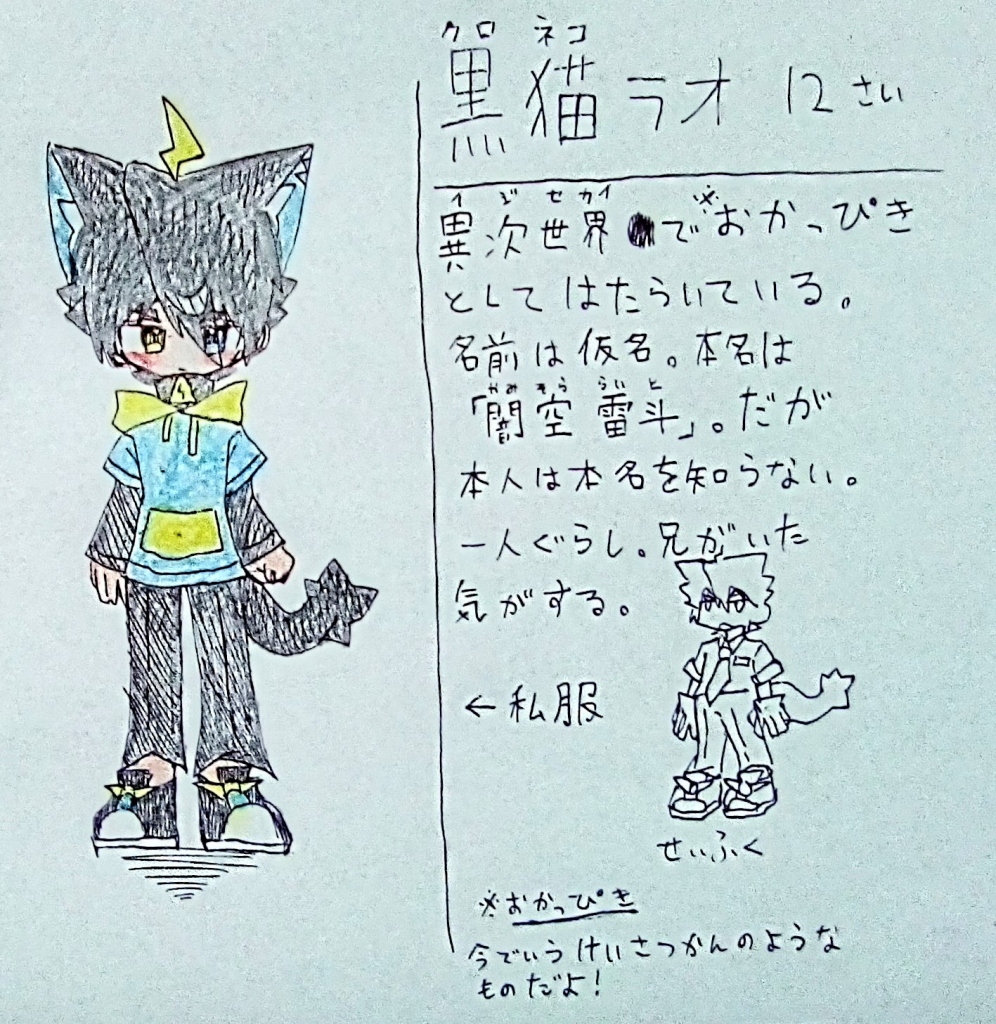 クロ ネコ
黒猫ラオ 12さい
イジセカイ ※
異次世界でおかっぴき
としてはたらいている。
名前は仮名。本名は
やみ そら らい と
「闇空雷斗」。だが
本人は本名を知らない。
一人ぐらし。兄がいた
気がする。
←私服
せいふく
※おかっぴき
今でいうけいさつかんのような
ものだよ!